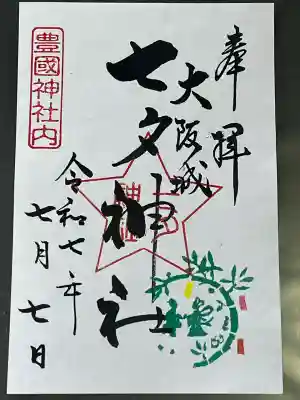 奉拝
大阪城
七夕神社
豊國神社内
令和七年
七月七日